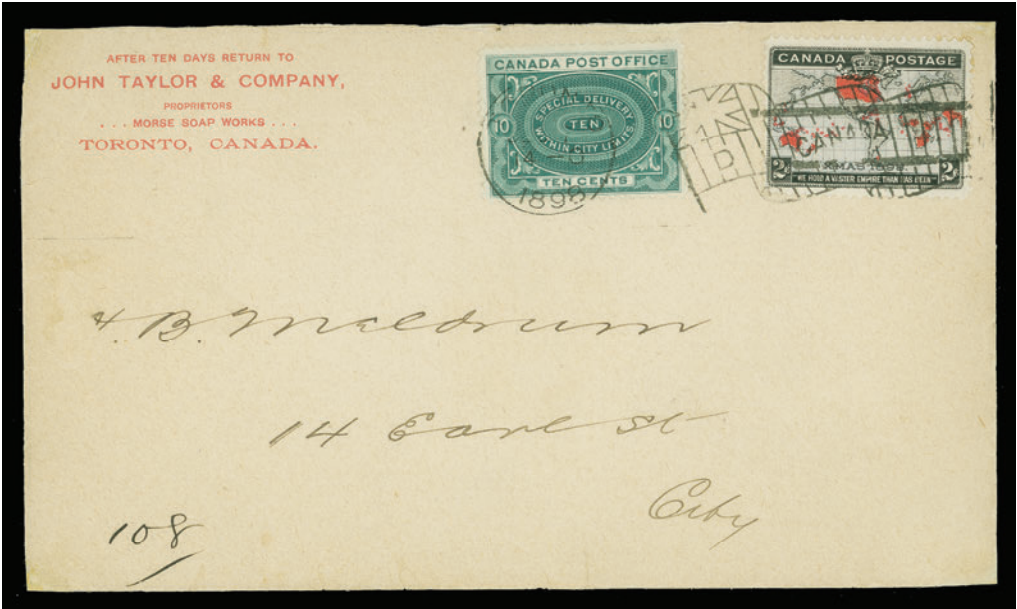 AFTER TEN DAYS RETURN TO
JOHN TAYLOR & COMPANY,
PROPRIETORS
... MORSE SOAP WORKS ...
TORONTO, CANADA.
CANADA POST OFFICE
SPECIAL DELIVERY
10 TEN 10
WITHIN CITY LIMITS
TEN CENTS
1898
D
CANADA POSTAGE
CANADA
XMAS 1898
2 2
"WE HOLD A VASTER EMPIRE THAN HAS BEEN"
H. B. Meldrum
14 Earl St
City
108